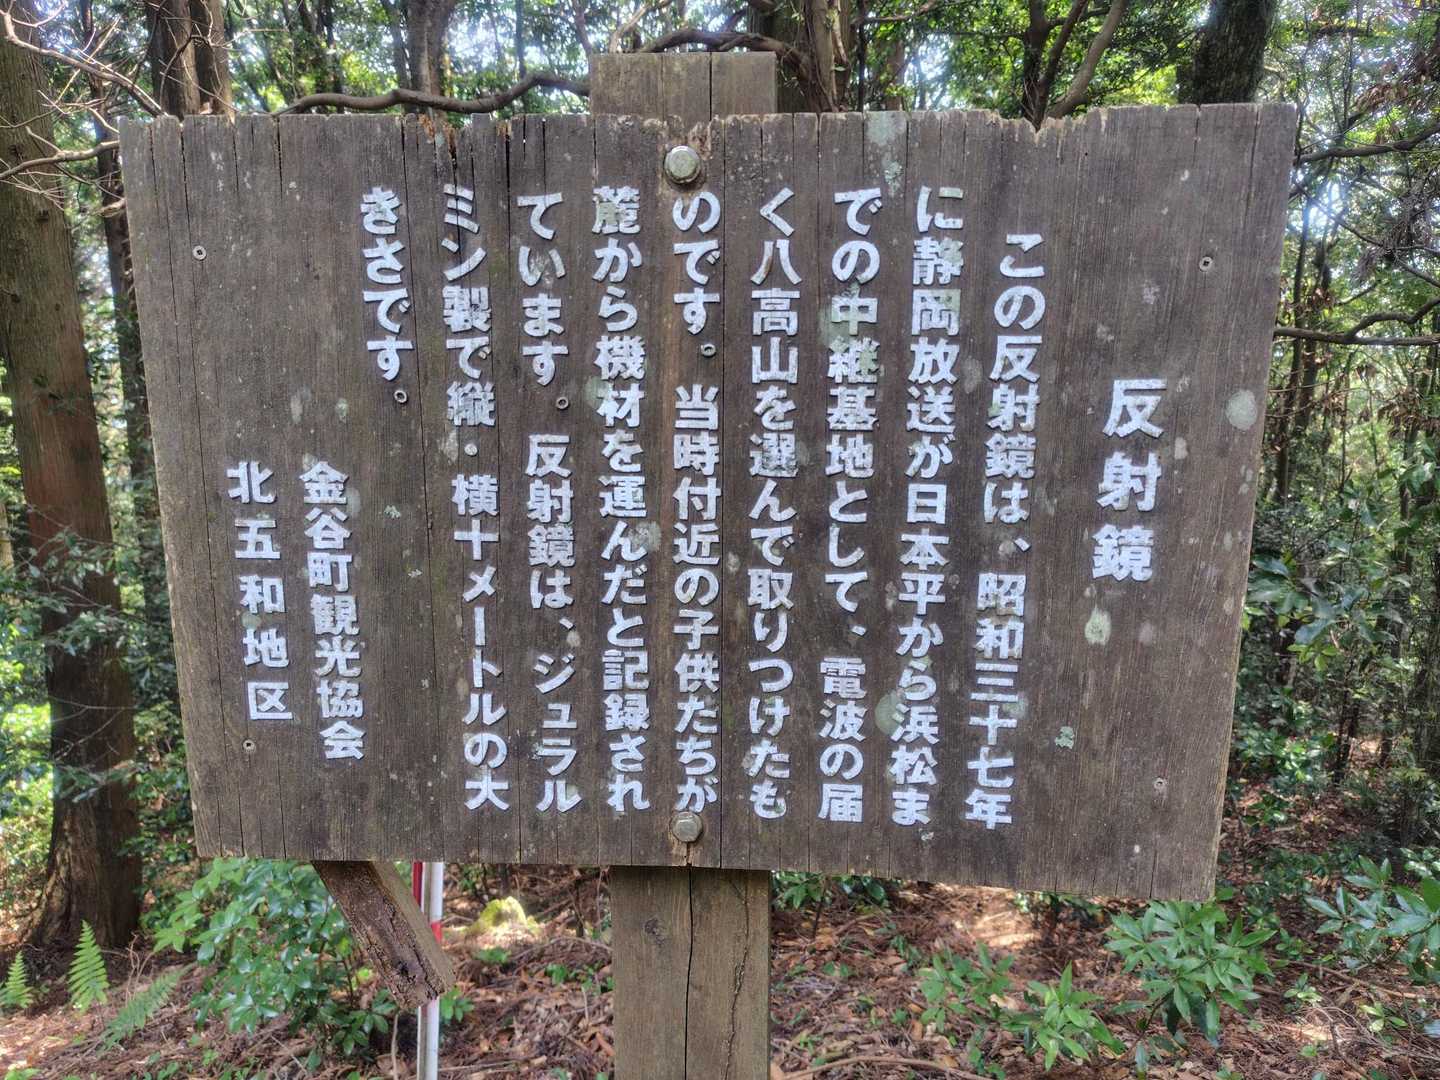 反射鏡
この反射鏡は、昭和三十七年
に静岡放送が日本平から浜松ま
での中継基地として、電波の届
く八高山を選んで取りつけたも
のです。当時付近の子供たちが
麓から機材を運んだと記録され
ています。反射鏡は、ジュラル
ミン製で縦・横十メートルの大
きさです。
金谷町観光協会
北五和地区